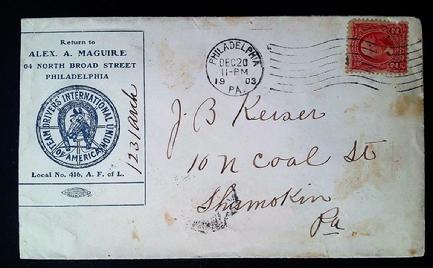 Return to
ALEX. A. MAGUIRE
04 NORTH BROAD STREET
PHILADELPHIA
TEAM DRIVERS INTERNATIONAL UNION
OF AMERICA
Local No. 416, A. F. of L.
1231 Arch
PHILADELPHIA
DEC 20
11-PM
1903
PA.
J. B Keiser
10 N Coal St
Shamokin
Pa